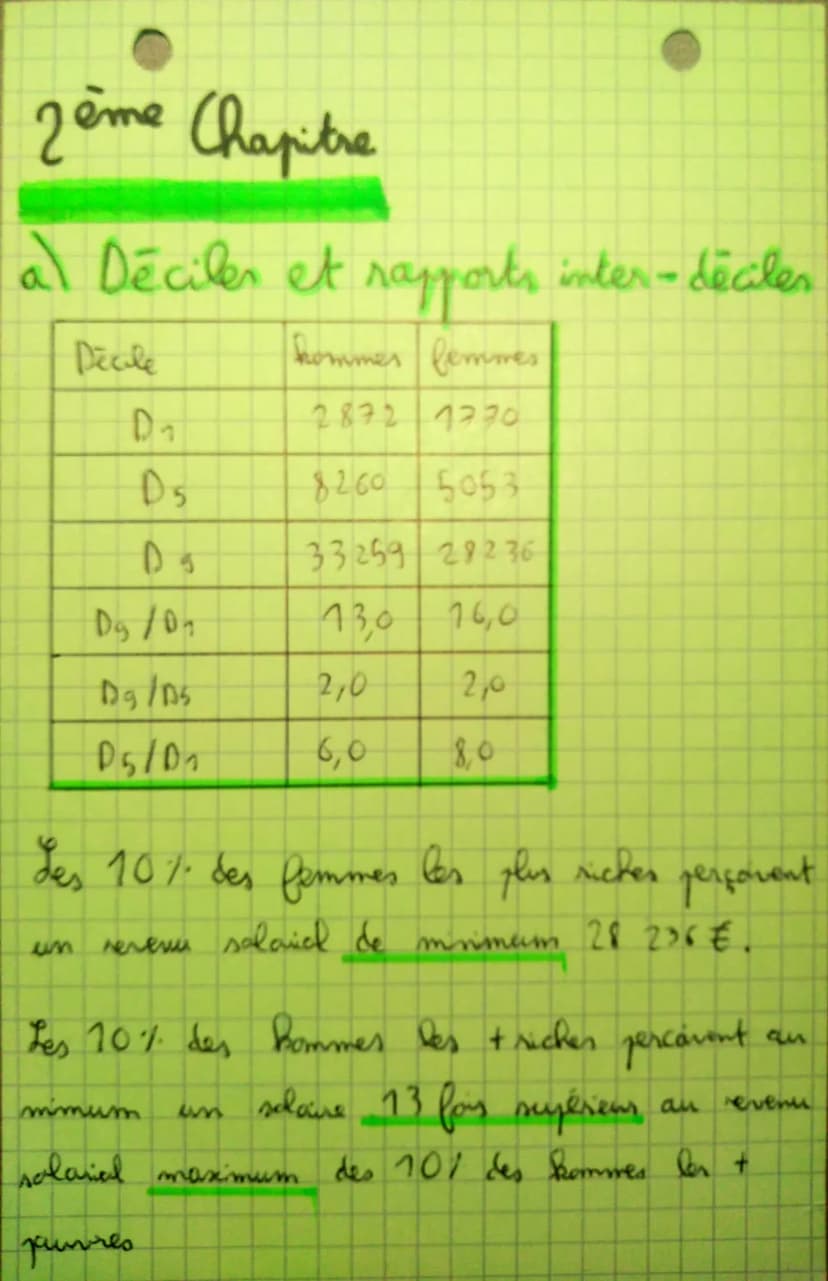 2ème Chapitre
a) Déciles et rapports inter-déciles
Décile hommes femmes
D1 2872 1770
D5 8260 5053
D9 33259 28236
D9/D1 13,0 16,0
D9/D5 2,0 2,0
D5/D1 6,0 8,0
Les 10% des femmes les plus riches perçoivent
un revenu salariel de minimum 28 236€.
Les 10% des hommes les + riches percoivent au
mimum un salaire 13 fois supérieur au revenu
salarial maximum des 10% des hommes les +
pauvres